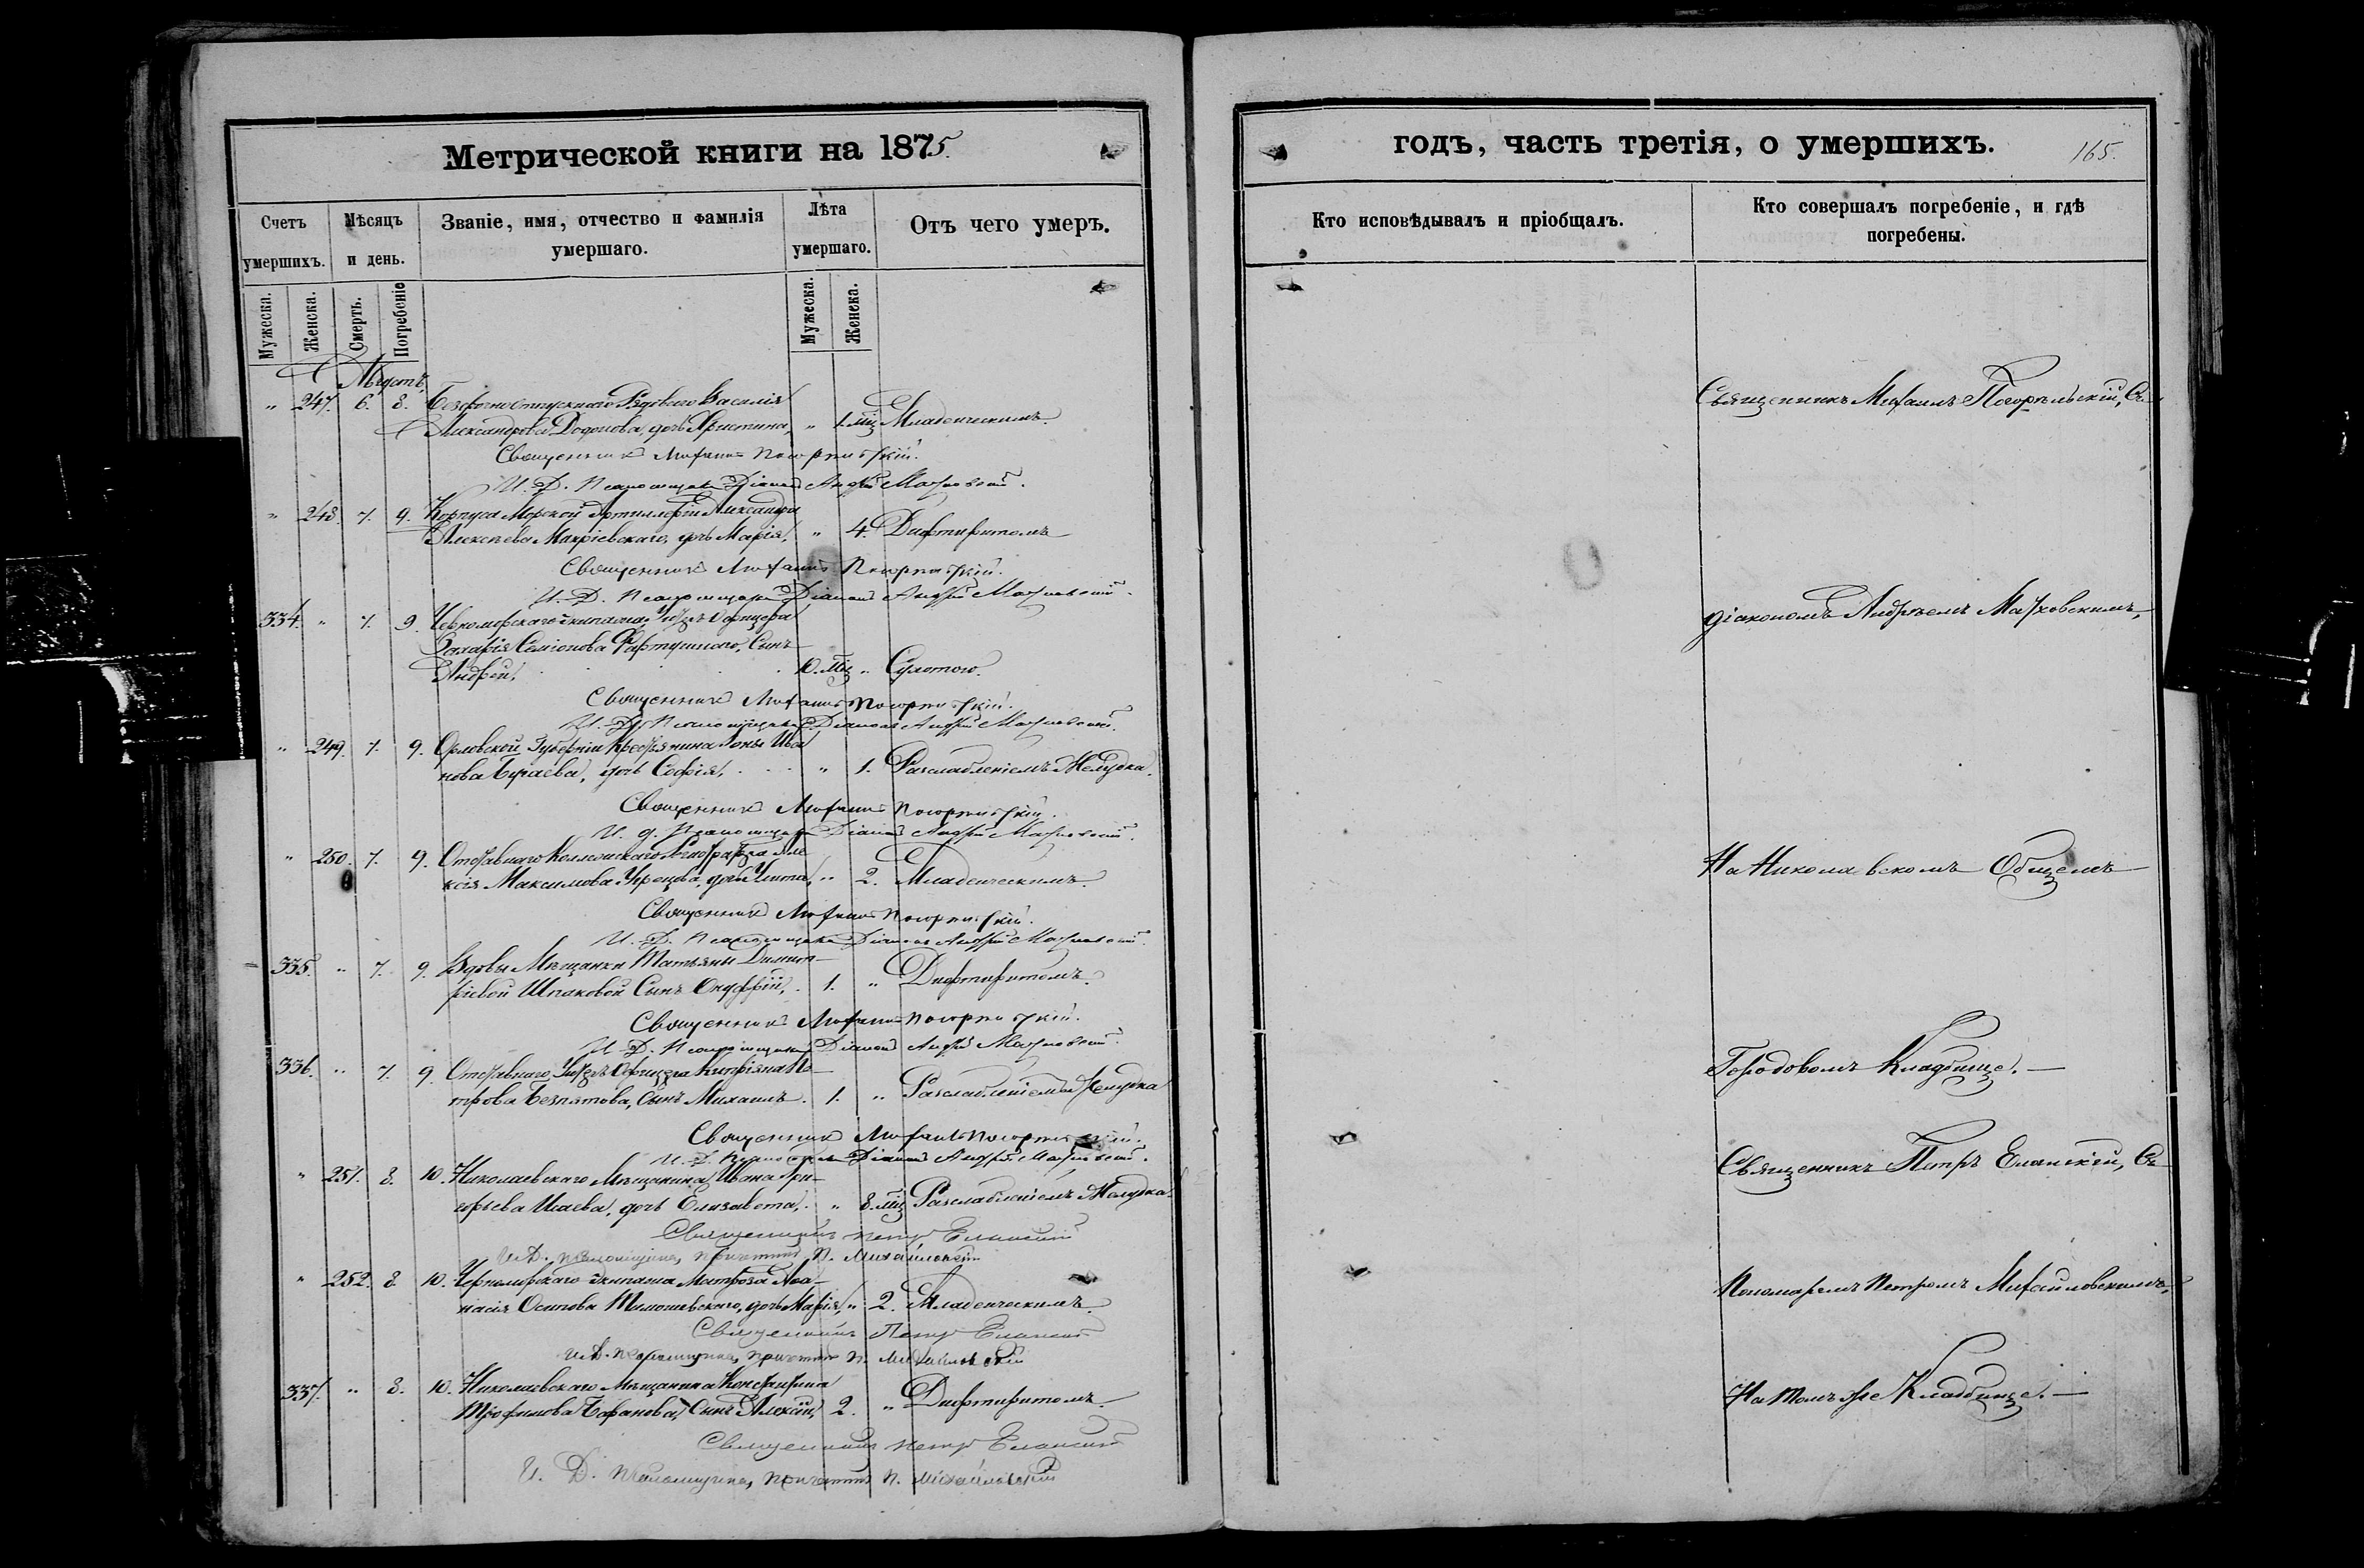 Метрической книги на 1875.
Счетъ умершихъ.
Мѣсяцъ и день.
Званіе, имя, отчество и фамилія умершаго.
Лѣта умершаго.
Отъ чего умеръ.
Мужеска.
Женска.
Смерть.
Погребеніе
Мужеска.
Женска.
Августъ,
" 247. 6. 8. Безсрочноотпускнаго Рядоваго Василія
Александрова Додонова, дочь Христина, " 1. мц Младенческимъ.
Священникъ Михаилъ Погорѣльскій.
И. Д. Псаломщика Діаконъ Андрей
" 248. 7. 9. Корпуса Морской Артиллеріи Александра
Алексѣева Макріевскаго, дочь Марія, " 4. Дифтиритомъ
Священникъ Михаилъ Погорѣльскій.
И. Д. Псаломщика Діаконъ Андрей
334. " 7. 9. Черноморскаго Экипажа, Унтеръ Офицера
Захарія Семіонова Фартушнаго, Сынъ
Андрей, 10. мц " Сухотою.
Священникъ Михаилъ Погорѣльскій.
И. Д. Псаломщика Діаконъ Андрей
" 249. 7. 9. Орловской Губерніи Крестьянина Іоны Ива
нова Бугаева, дочь Софія, " 1. Разслабленіемъ Желудка.
Священникъ Михаилъ Погорѣльскій.
И. д. Псаломщика Діаконъ Андрей
" 250. 7. 9. Отставнаго Коллежскаго Регистратора Але
ксія Максимова дочь " 2. Младенческимъ.
Священникъ Михаилъ Погорѣльскій.
И. Д. Псаломщика Діаконъ Андрей
335. " 7. 9. Вдовы Мѣщанки Татьяны Димит
ріевой Шпаковой Сынъ Онуфрій, 1. " Дифтиритомъ.
Священникъ Михаилъ Погорѣльскій.
И. Д. Псаломщика Діаконъ Андрей
336. " 7. 9. Отставнаго Унтеръ Офицера Кипріяна Пе
трова Безпятова, Сынъ Михаилъ. 1. " Разслабленіемъ Желудка
Священникъ Михаилъ Погорѣльскій.
И. Д. Псаломщика Діаконъ Андрей
" 251. 8. 10. Николаевскаго Мѣщанина Ивана Гри
горьева Исаева, дочь Елизавета, " 8. мц Разслабленіемъ Желудка.
Священникъ Петръ Еланскій
И. Д. псаломщика, причетникъ П. Михайловскій
" 252. 8. 10. Черноморскаго Экипажа Матроза Афа
насія Осипова Тимошевскаго, дочь Марія, " 2. Младенческимъ.
Священникъ Петръ Еланскій
И. Д. псаломщика, причетникъ П. Михайловскій
337. " 8. 10. Николаевскаго Мѣщанина Константина
Трофимова Баранова, Сынъ Алексій, 2. " Дифтиритомъ.
Священникъ Петръ Еланскій
И. Д. псаломщика, причетникъ П. Михайловскій
годъ, часть третія, о умершихъ.
165.
Кто исповѣдывалъ и пріобщалъ.
Кто совершалъ погребеніе, и гдѣ погребены.
Священникъ Михаилъ Погорѣльскій, Съ
діакономъ Андреемъ
На Николаевскомъ Общемъ
Городовомъ Кладбище.
Священникъ Петръ Еланскій, Съ
Пономаремъ Петромъ Михайловскимъ,
На томъ же Кладбище.